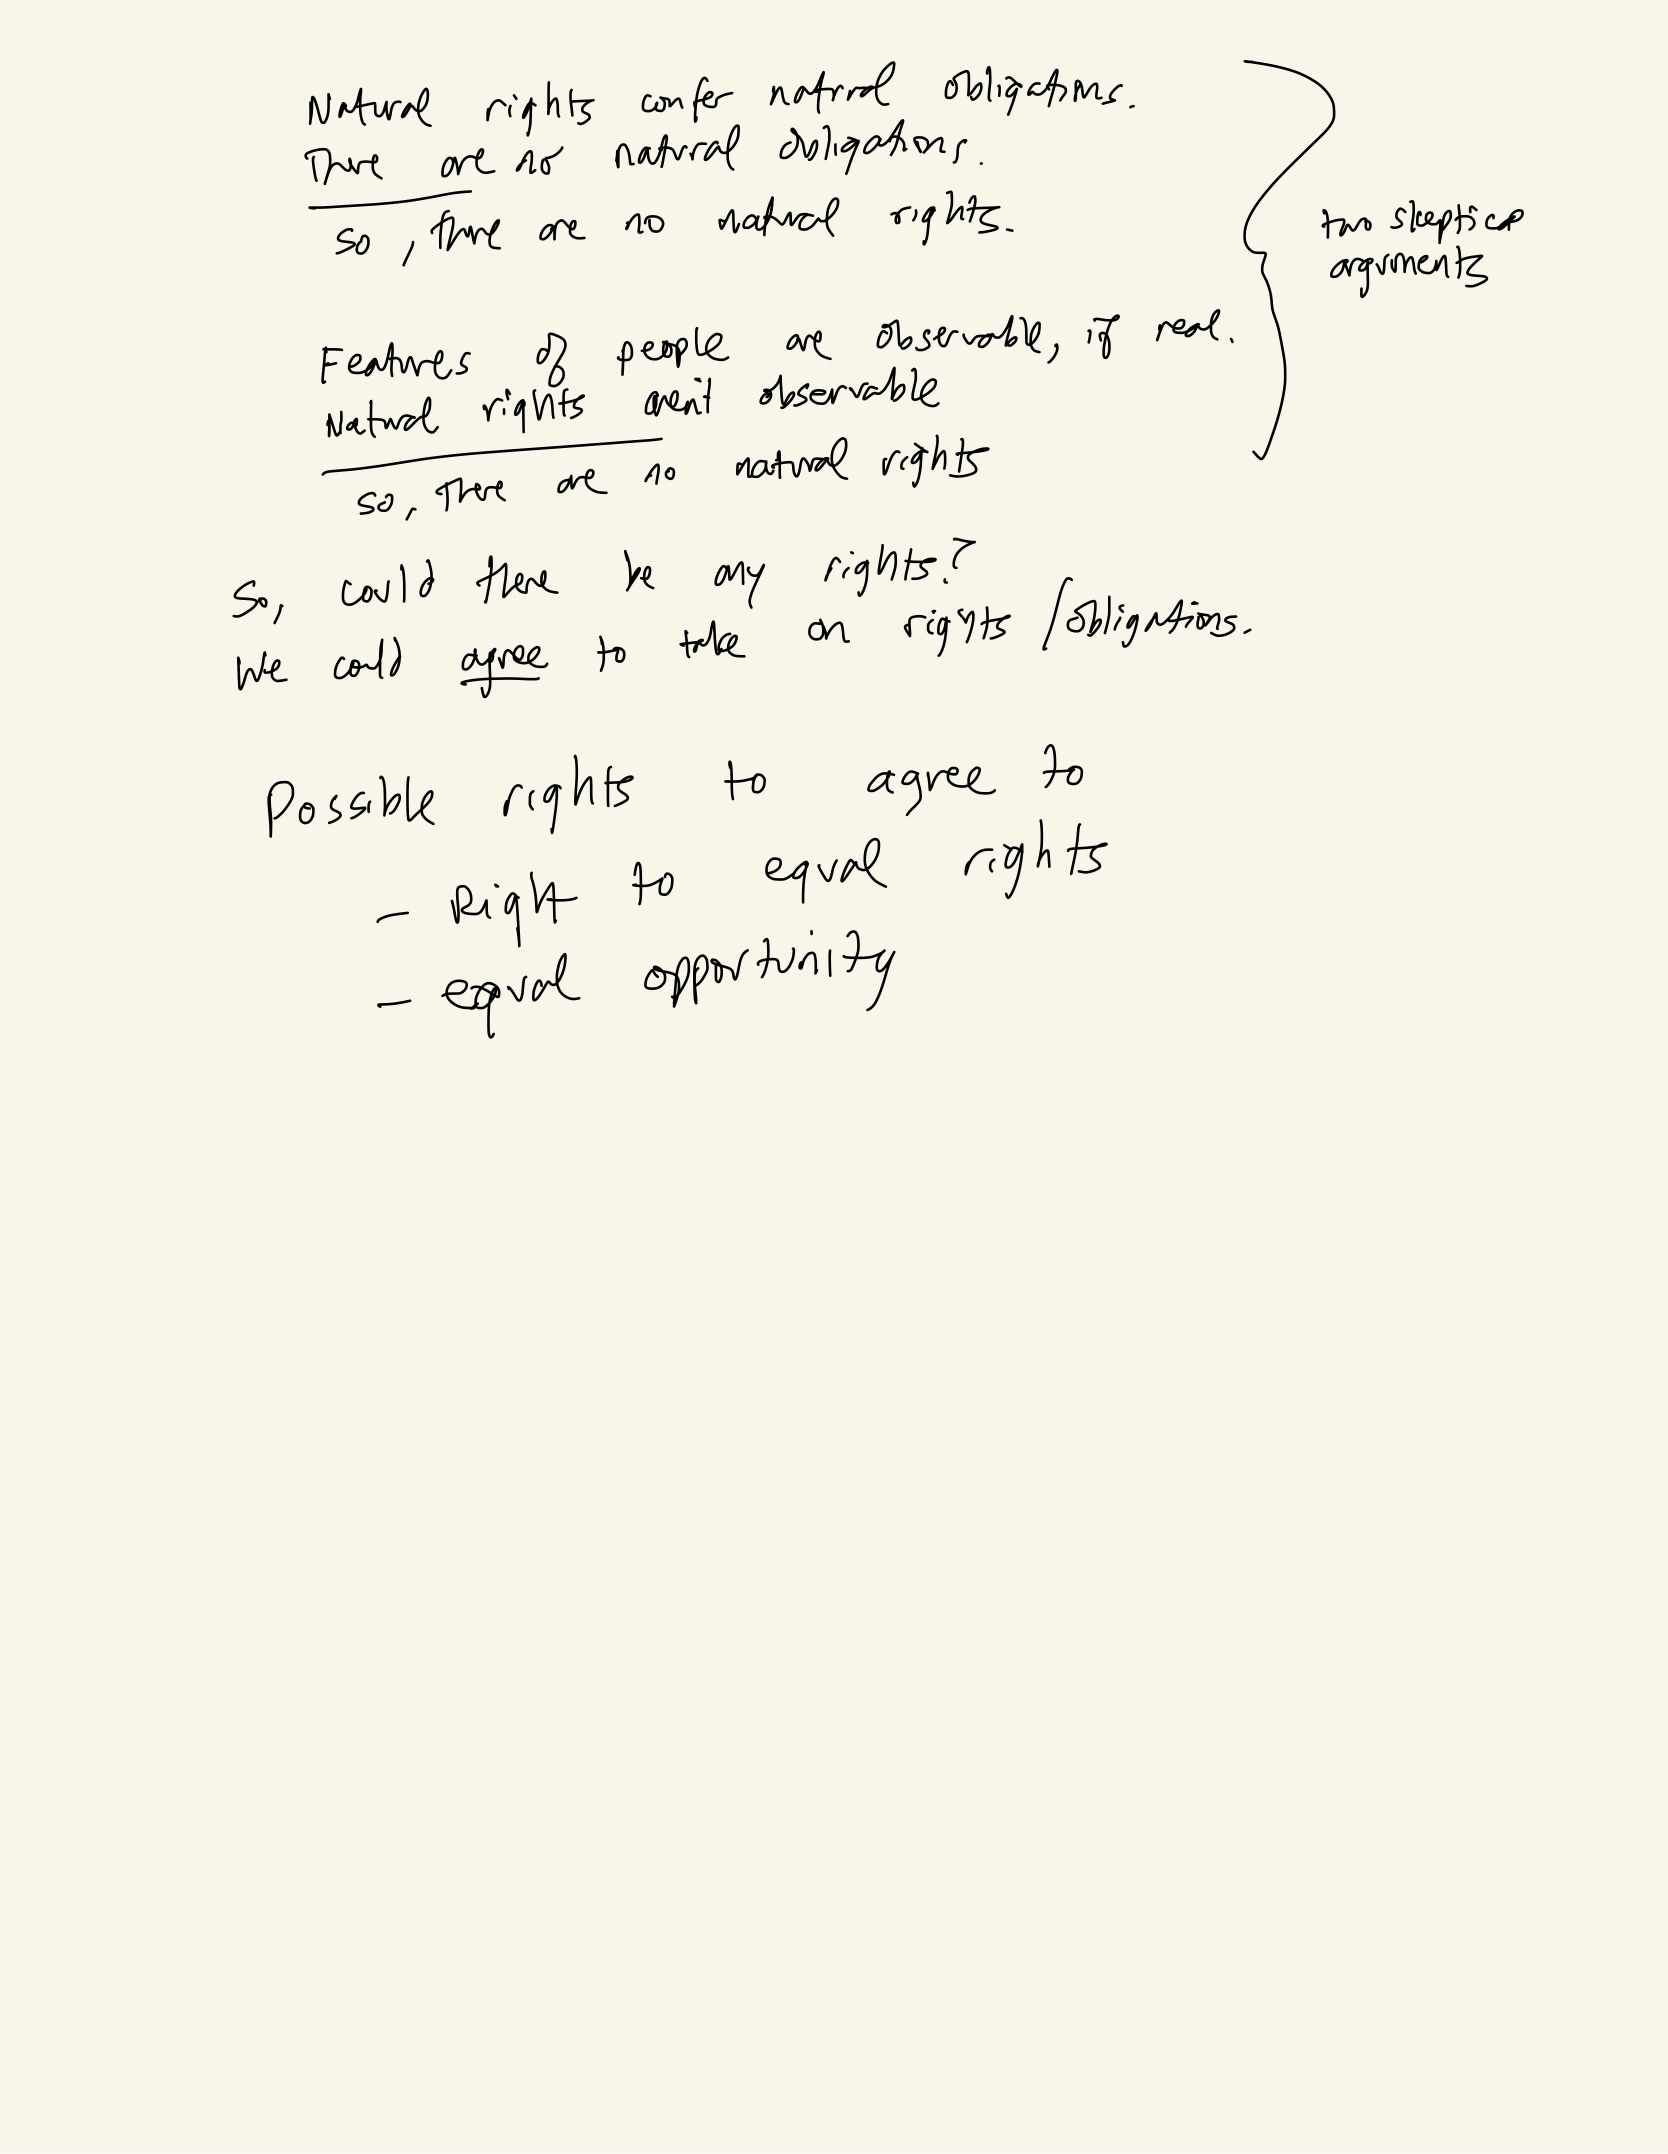 Natural rights confer natural obligations.
There are no natural obligations.
so, there are no natural rights.
two skeptical
arguments
Features of people are observable, if real.
Natural rights aren't observable
so, There are no natural rights
So, could there be any rights?
We could agree to take on rights / obligations.
Possible rights to agree to
- Right to equal rights
- equal opportunity